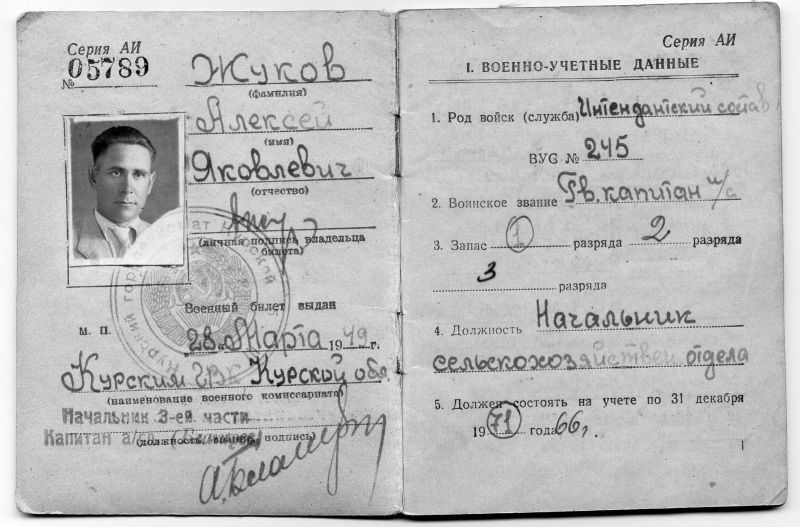 Серия АИ
№ 05789
Жуков
(фамилия)
Алексей
(имя)
Яковлевич
(отчество)
(личная подпись владельца
билета)
Военный билет выдан
М. П.
"28" Марта 1949 г.
Курским ГВК Курской обл.
(наименование военного комиссариата)
Начальник 3-ей части
Капитан а/сл.
(должность, звание, подпись)
Серия АИ
1. ВОЕННО-УЧЕТНЫЕ ДАННЫЕ
1. Род войск (служба) Интендантский состав
ВУС № 245
2. Воинское звание Гв. капитан и/с
3. Запас 1 разряда 2 разряда
3 разряда
4. Должность Начальник
сельскохозяйствен. отдела
5. Должен состоять на учете по 31 декабря
1971 года 66 г.
1